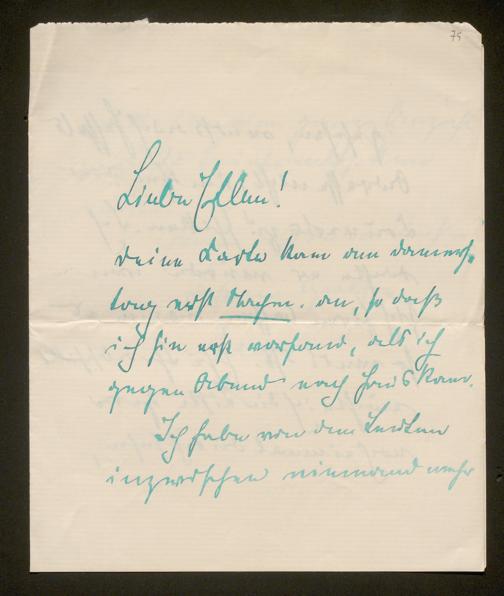 75
Liebe Ellen!
Deine Karte kam am Donners-
tag erst Nachm. an, so daß
ich sie erst vorfand, als ich
gegen Abend nach Haus kam.
Ich habe von den Leuten
inzwischen niemand mehr